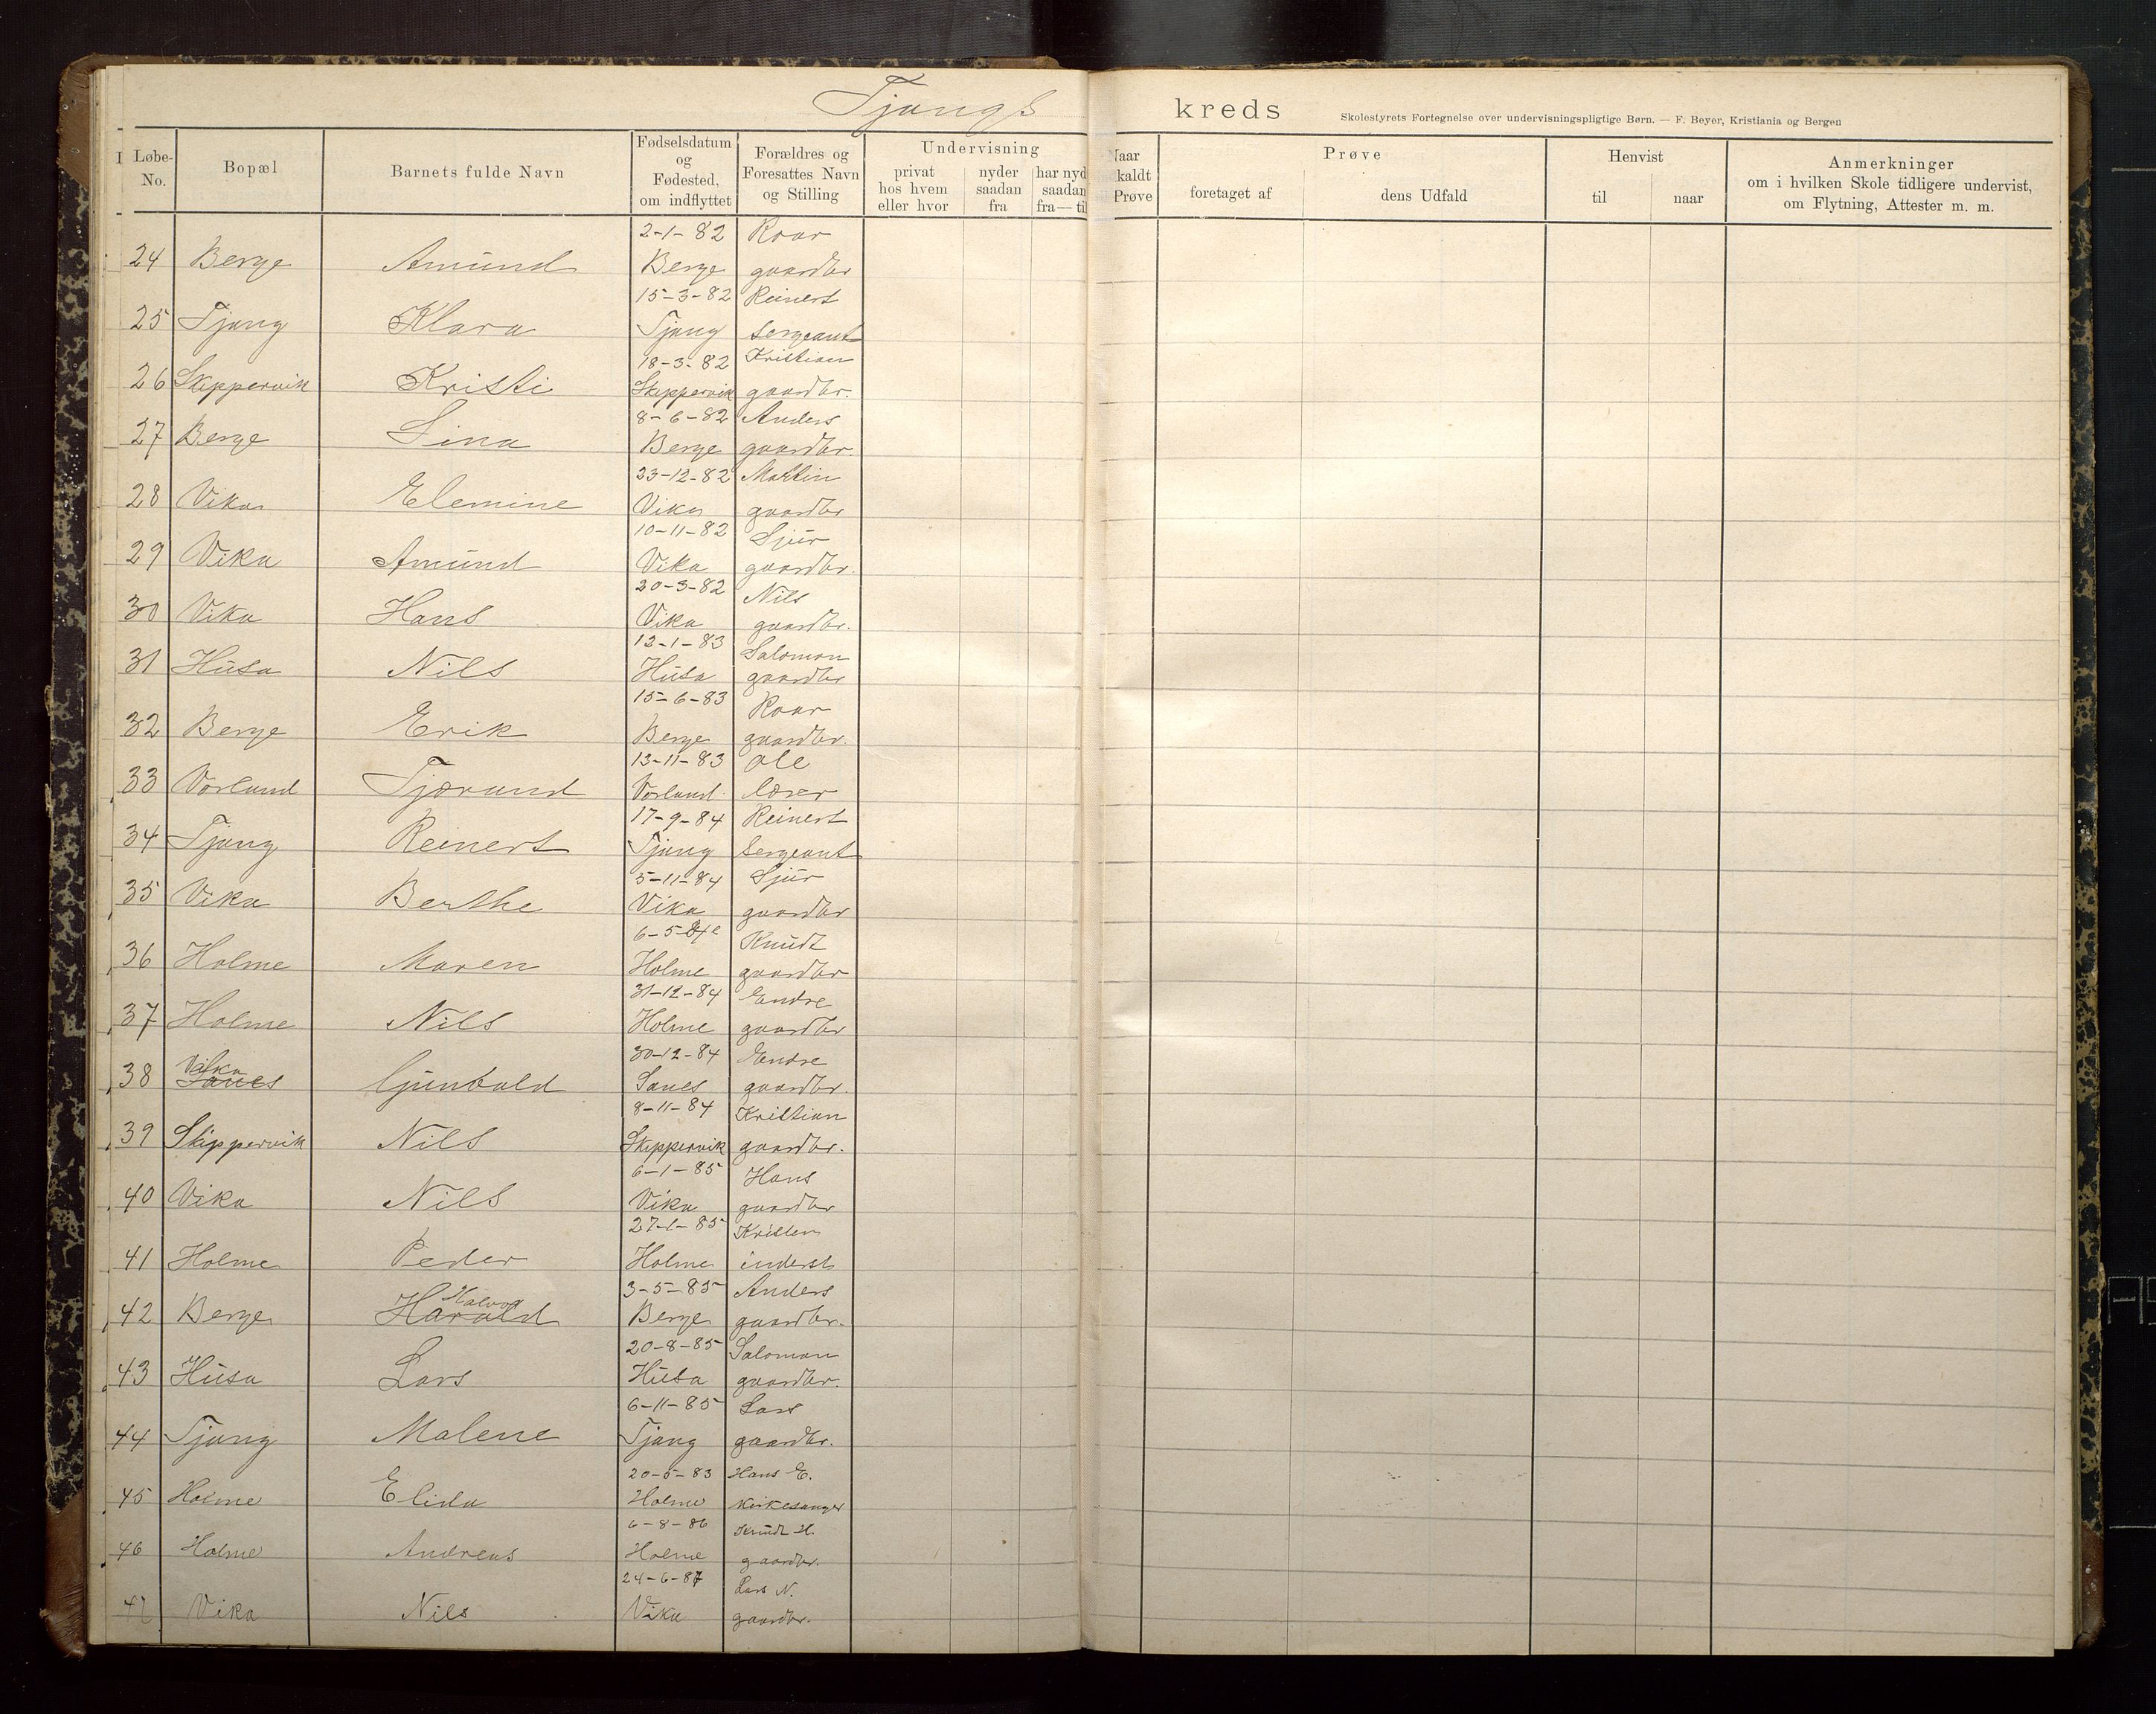 Tjongs kreds
Skolestyrets Fortegnelse over undervisningspligtige Børn. — F. Beyer, Kristiania og Bergen
Løbe-No. Bopæl Barnets fulde Navn Fødselsdatum og Fødested, om indflyttet Forældres og Foresattes Navn og Stilling Undervisning privat hos hvem eller hvor nyder saadan fra har nyd saadan fra — til
Naar kaldt Prøve Prøve foretaget af dens Udfald Henvist til naar Anmerkninger om i hvilken Skole tidligere undervist, om Flytning, Attester m. m.
2-1-82 Roar
24 Berge Amund Berge gaardbr
15-3-82 Reinert
25 Tjong Klara Tjong Sergeant
18-3-82 Kristian
26 Skippervik Kristi Skippervik gaardbr.
8-6-82 Anders
27 Berge Lina Berge gaardbr.
23-12-82 Martin
28 Vika Elemine Vika gaardbr
10-11-82 Sjur
29 Vika Amund Vika gaardbr.
20-3-82 Nils
30 Vika Hans Vika gaardbr.
12-1-83 Salomon
31 Husa Nils Husa gaardbr
15-6-83 Roar
32 Berge Erik Berge gaardbr.
13-11-83 Ole
33 Vorland Tjørand Vorland lærer
17-9-84 Reinert
34 Tjong Reinert Tjong Sergeant
5-11-84 Sjur
35 Vika Berthe Vika gaardbr
6-5-84 Knudt
36 Holme Maren Holme gaardbr
31-12-84 Endre
37 Holme Nils Holme gaardbr
30-12-84 Endre
Vika
38 Sanes Gunbald Sanes gaardbr.
8-11-84 Kristian
39 Skippervik Nils Skippervik gaardbr.
6-1-85 Hans
40 Vika Nils Vika gaardbr
27-1-85 Kristen
41 Holme Peder Holme inderst
3-5-85 Anders
Halvor
42 Berge Harald Berge gaardbr.
20-8-85 Salomon
43 Husa Lars Husa gaardbr.
6-11-85 Lars
44 Tjong Malene Tjong gaardbr.
20-5-83 Hans E.
45 Holme Elida Holme Kirkesanger
6-8-86 Knudt H.
46 Holme Andreas Holme gaardbr.
24-6-87 Lars N.
47 Vika Nils Vika gaardbr.